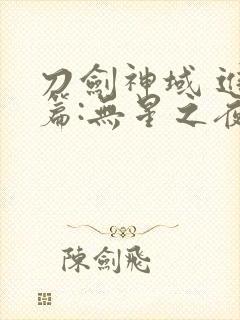 刀劍神域 進
篇:無星之夜
陳劍飛